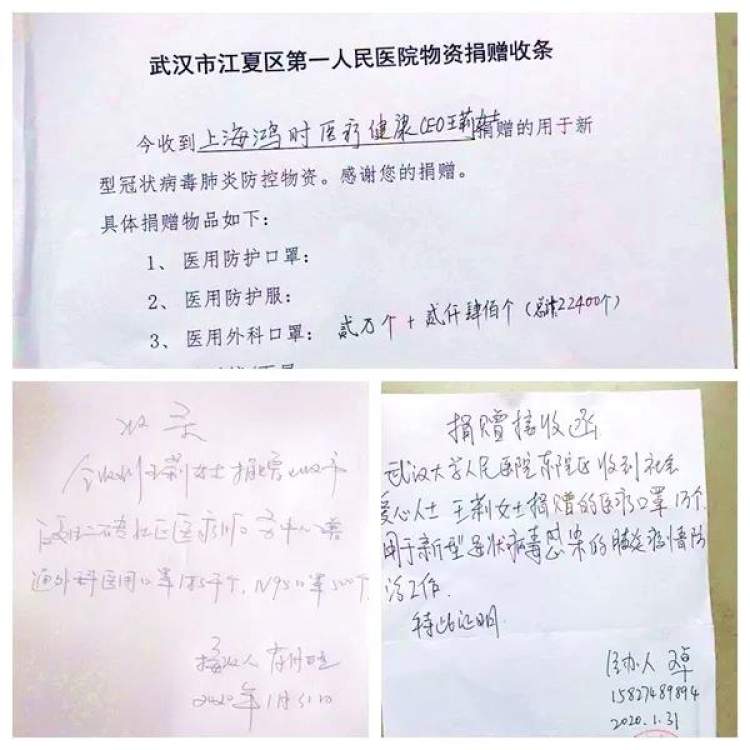 武汉市江夏区第一人民医院物资捐赠收条
今收到上海鸿时医疗健康CEO王莉女士捐赠的用于新
型冠状病毒肺炎防控物资。感谢您的捐赠。
具体捐赠物品如下:
1、医用防护口罩:
2、医用防护服:
3、医用外科口罩: 贰万个 + 贰仟肆佰个 (总计22400个)
收条
今收到王莉女士捐赠
社区医疗服务中心普
通外科医用口罩 N95口罩500个
接收人
2020年1月31日
捐赠接收函
武汉大学人民医院东院区收到社会
爱心人士王莉女士捐赠的医疗口罩1万个
用于新型冠状病毒感染的肺炎疫情防
治工作.
特此证明
经办人
15827489894
2020.1.31